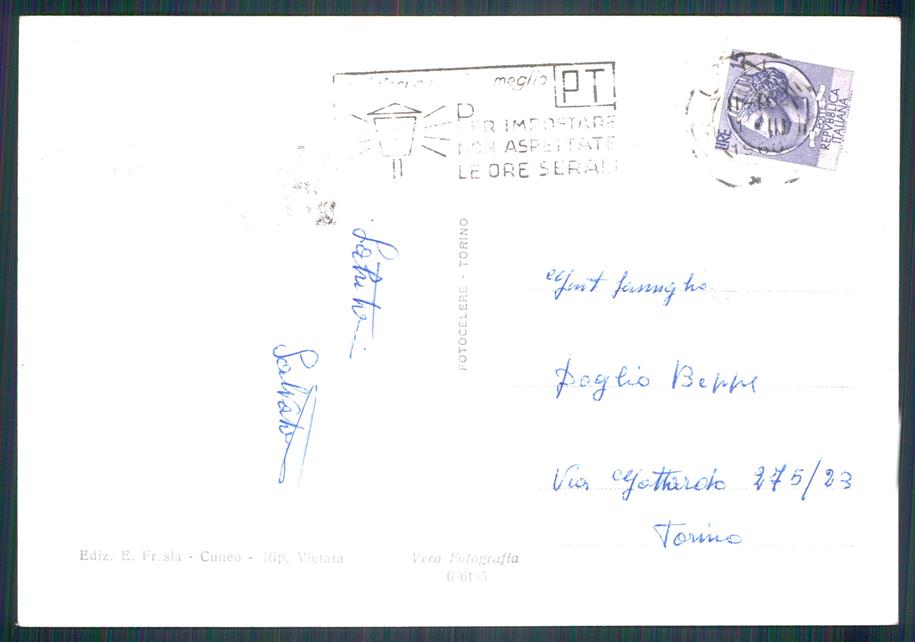 meglio PT
PER IMPOSTARE
NON ASPETTATE
LE ORE SERALI
LIRE 15
POSTE
REPVBBLICA
ITALIANA
1960
FOTOCELERE - TORINO
Gent famiglia
Beppe
Via Gottardo 275/23
Torino
Ediz. E. Fr sia - Cuneo - Rip. Vietata
Vera Fotografia